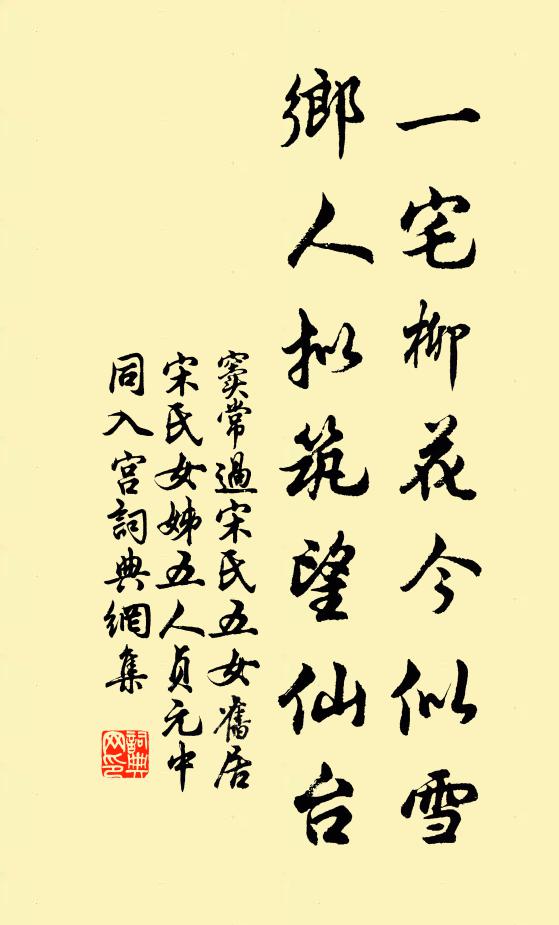 一宅柳花今似雪
鄉人拟筑望仙台
窦常過宋氏五女舊居
宋氏女姊五人貞元中
同入宫詞典網集
詞典網印